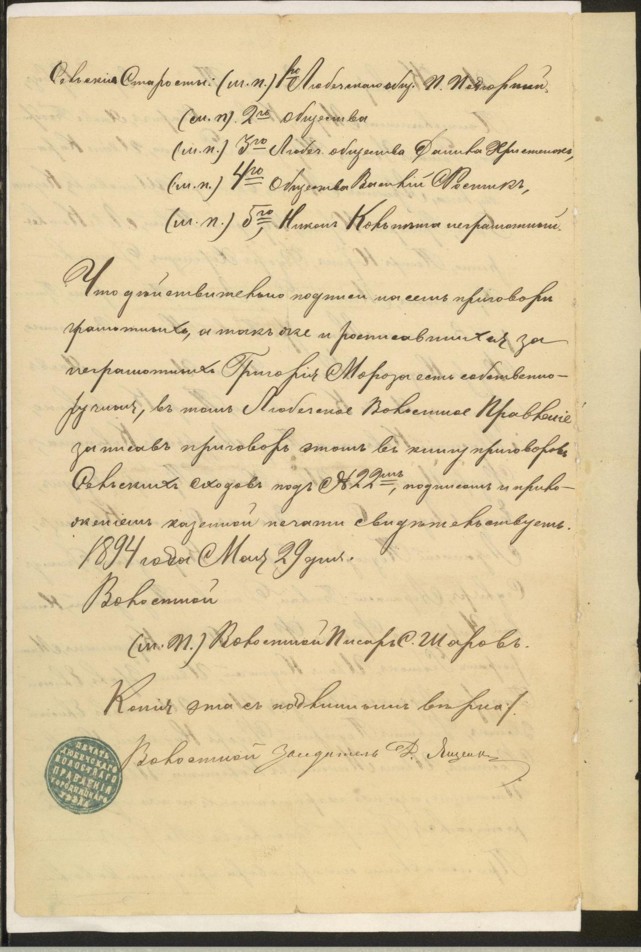 Сельскіе Старосты: (м. п.) 1го Любечскаго общ. П. Подгорный.
(м. п.) 2го общества
(м. п.) 3го Любеч. общества Данило
(м. п.) 4го общества Василій Ростикъ,
(м. п.) 5го, Никонъ неграмотный.
Что дѣйствительно подписи на семъ приговорѣ
грамотныхъ, а такъ же и росписавшихся за
неграмотныхъ Григорія Мороза есть собственно-
ручныя, въ томъ Любечское Волостное Правленіе
записавъ приговоръ этотъ въ книгу приговоровъ
Сельскихъ сходовъ подъ №22мъ, подписомъ и прило-
женіемъ казенной печати свидѣтельствуетъ.
1894 года Мая 29 дня.
Волостной
(м. п.) Волостной Писарь С. Шаровъ.
Копія эта съ подлиннымъ вѣрна
Волостной Засѣдатель Ф. Ященко
ПЕЧАТЬ
ЛЮБЕЧСКАГО
ВОЛОСТНАГО
ПРАВЛЕНІЯ
ГОРОДНИЦКАГО
УѢЗДА